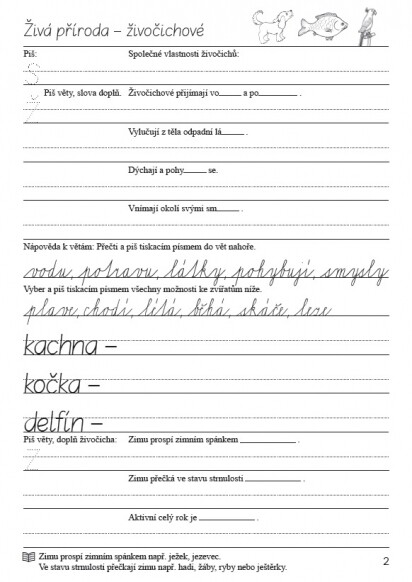 Živá příroda – živočichové
Piš: Společné vlastnosti živočichů:
S
Piš věty, slova doplň. Živočichové přijímají vo____ a po____ .
Ž
Vylučují z těla odpadní lá____ .
Dýchají a pohy____ se.
Vnímají okolí svými sm____ .
Nápověda k větám: Přečti a piš tiskacím písmem do vět nahoře.
vodu, potravu, látky, pohybují, smysly
Vyber a piš tiskacím písmem všechny možnosti ke zvířatům níže.
plave, chodí, létá, běhá, skáče, leze
kachna –
kočka –
delfín –
Piš věty, doplň živočicha: Zimu prospí zimním spánkem ____ .
Z
Zimu přečká ve stavu strnulosti ____ .
Aktivní celý rok je ____ .
Zimu prospí zimním spánkem např. ježek, jezevec.
Ve stavu strnulosti přečkají zimu např. hadi, žáby, ryby nebo ještěrky.
2